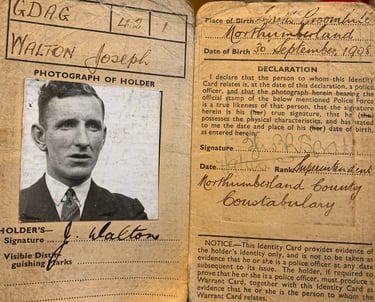 GDAG 42 1
WALTON Joseph
PHOTOGRAPH OF HOLDER
HOLDER'S—
Signature J. Walton
Visible Distin-
guishing Marks
Place of Birth Broomhill
Northumberland
Date of Birth 30 September, 1908
DECLARATION
I declare that the person to whom this Identity
Card relates is, at the date of this declaration, a police
officer, and that the photograph herein bearing the
official stamp of the below mentioned Police Force
is a true likeness of that person, that the signature
herein is his (her) true signature, that he (she)
possesses the physical characteristics, and has stated
to me the date and place of his (her) date of birth,
as entered herein.
Signature
Date Rank Superintendent
Northumberland County
Constabulary
NOTICE.—This Identity Card provides evidence of
the holder's identity only, and is not to be taken as
evidence that he or she is a police officer at any date
subsequent to its issue. The holder, if required to
prove that he or she is a police officer, must produce a
Warrant Card, together with this Identity Card as
evidence that he or she is the person to whom the
Warrant Card relates.